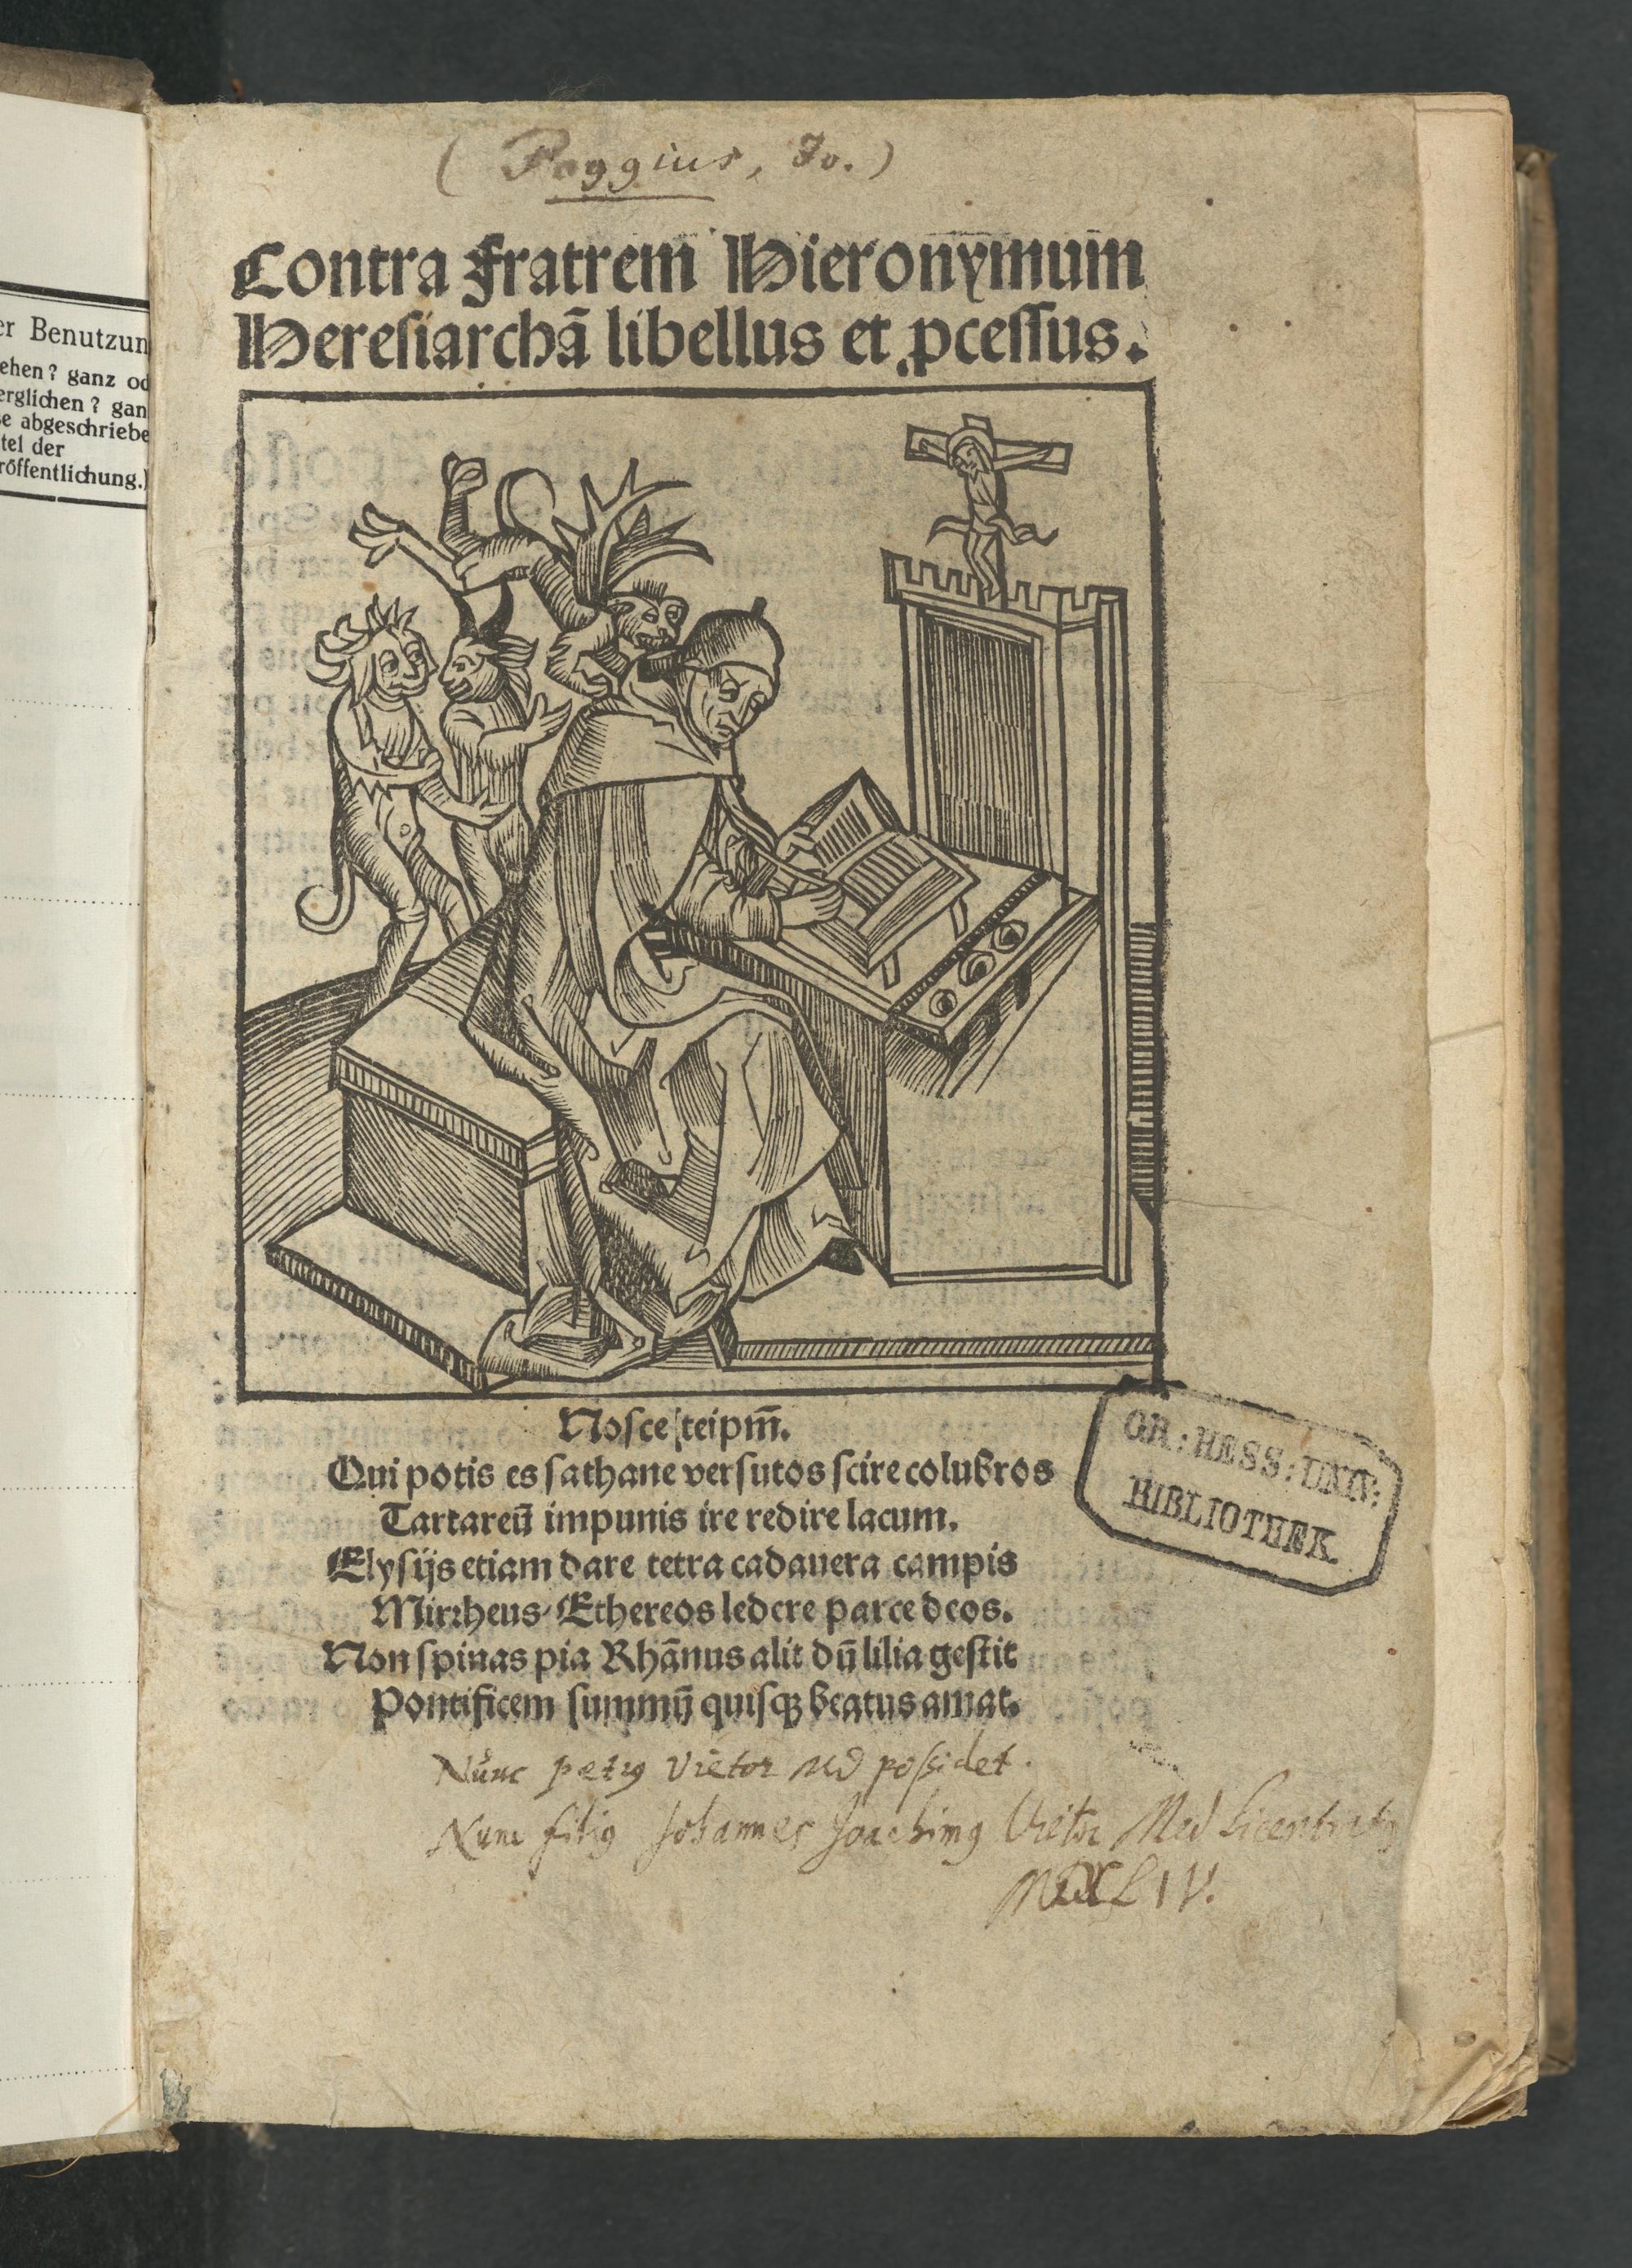 er Benutzun
ehen? ganz od
erglichen? gan
se abgeschriebe
tel der
röffentlichung.)
( Poggius, Jo. )
Contra fratrem Hieronymum
Heresiarchā libellus et ꝓcessus.
Nosce teipm̄.
Qui potis es sathane versutos scire colubros
Tartareū impunis ire redire lacum.
Elysijs etiam dare tetra cadauera campis
Mirrheus Ethereos ledere parce deos.
Non spinas pia Rhānus alit dū lilia gestit
Pontificem summū quisqꝫ beatus amat.
GR: HESS: UNIV:
BIBLIOTHEK.
Nunc petrꝰ Vietor MD possidet.
Nunc filiꝰ Johannes Joachimꝰ Vietor Med Licentiatꝰ